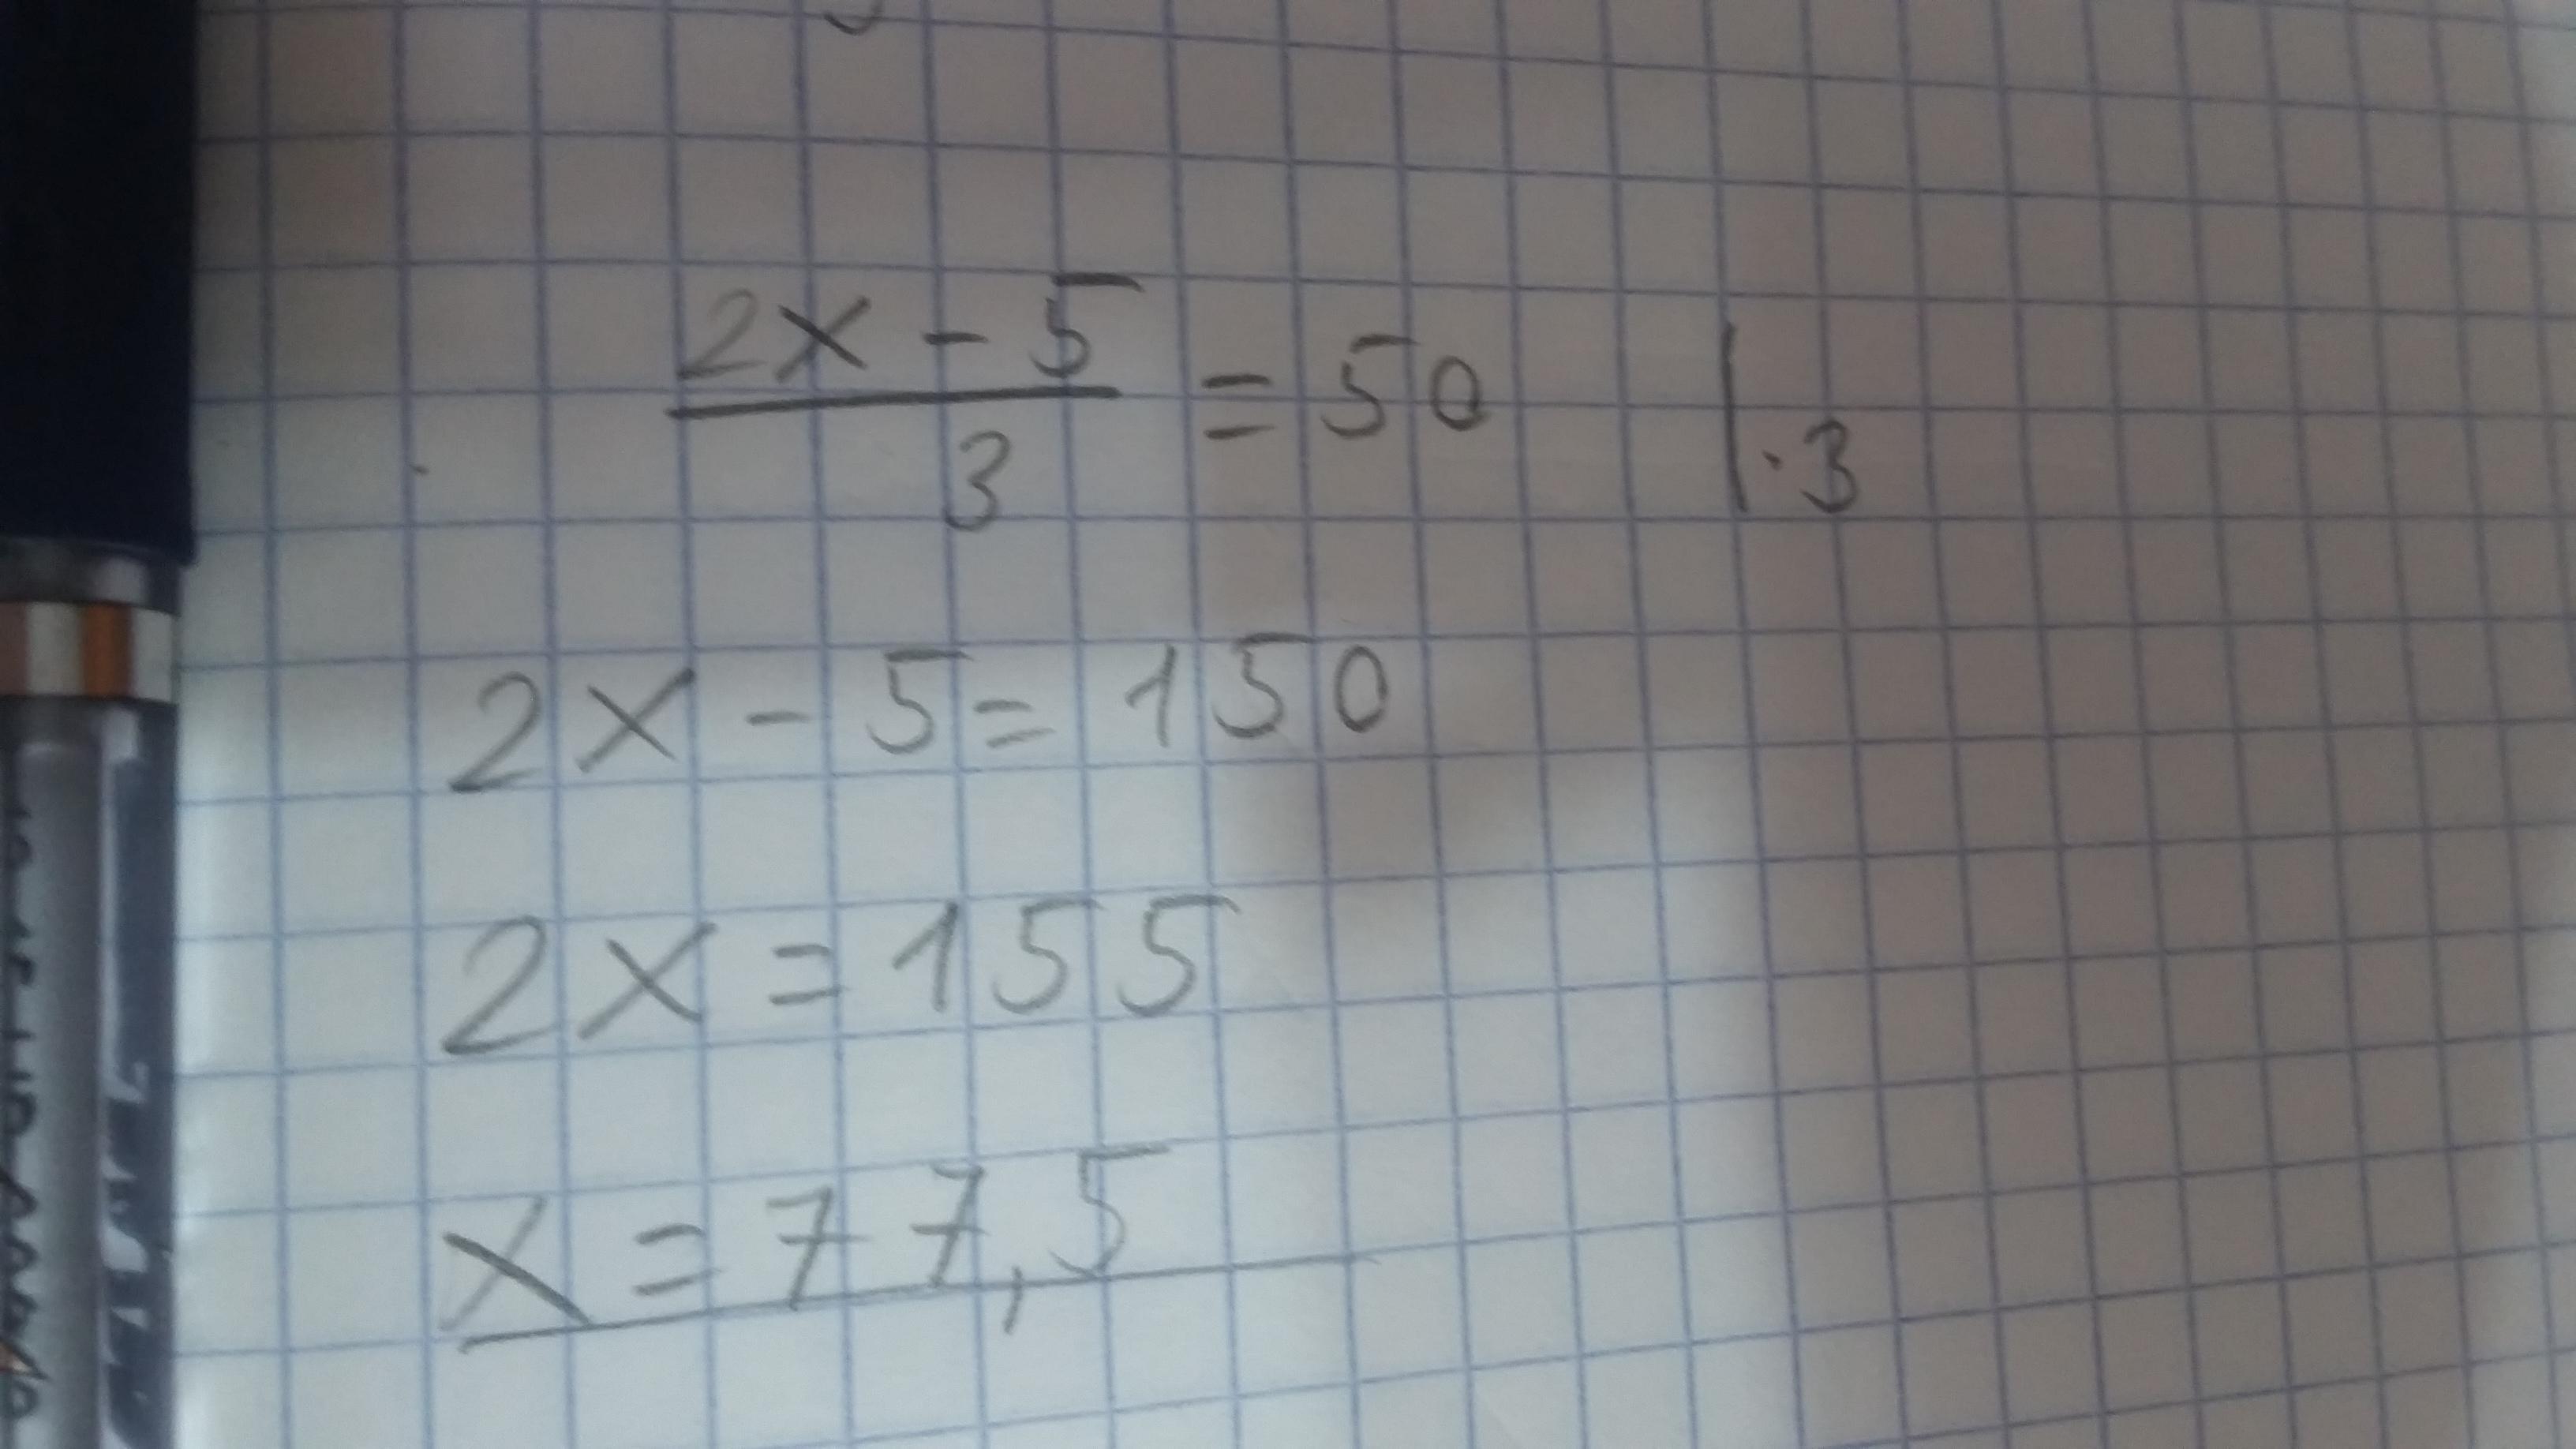 2x - 5
/ 3 = 50 | · 3
2x - 5 = 150
2x = 155
x = 77,5